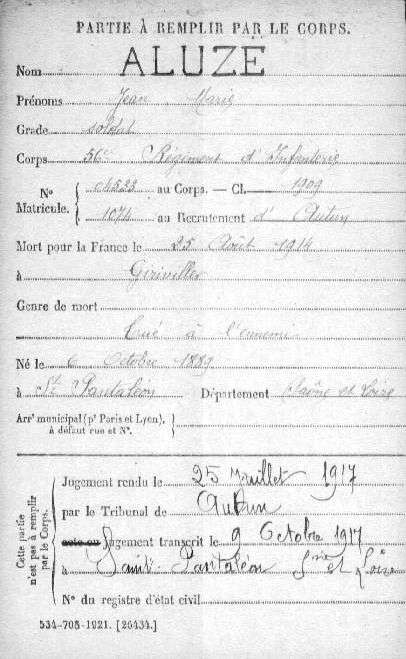 PARTIE À REMPLIR PAR LE CORPS.
Nom ALUZE
Prénoms Jean Marie
Grade soldat
Corps 56e Régiment d'Infanterie
N° Matricule. { 04523 au Corps. — Cl. 1909
1074 au Recrutement d'Autun
Mort pour la France le 25 Août 1914
à Giriviller
Genre de mort
Tué à l'ennemi
Né le 6 Octobre 1889
à St Pantaléon Département Saône et Loire
Arrt municipal (pr Paris et Lyon),
à défaut rue et N°.
Cette partie n'est pas à remplir par le Corps.
Jugement rendu le 25 Juillet 1917
par le Tribunal de Autun
acte ou Jugement transcrit le 9 Octobre 1917
à Saint-Pantaléon Sne et Loire
N° du registre d'état civil
534-708-1921. [26434.]